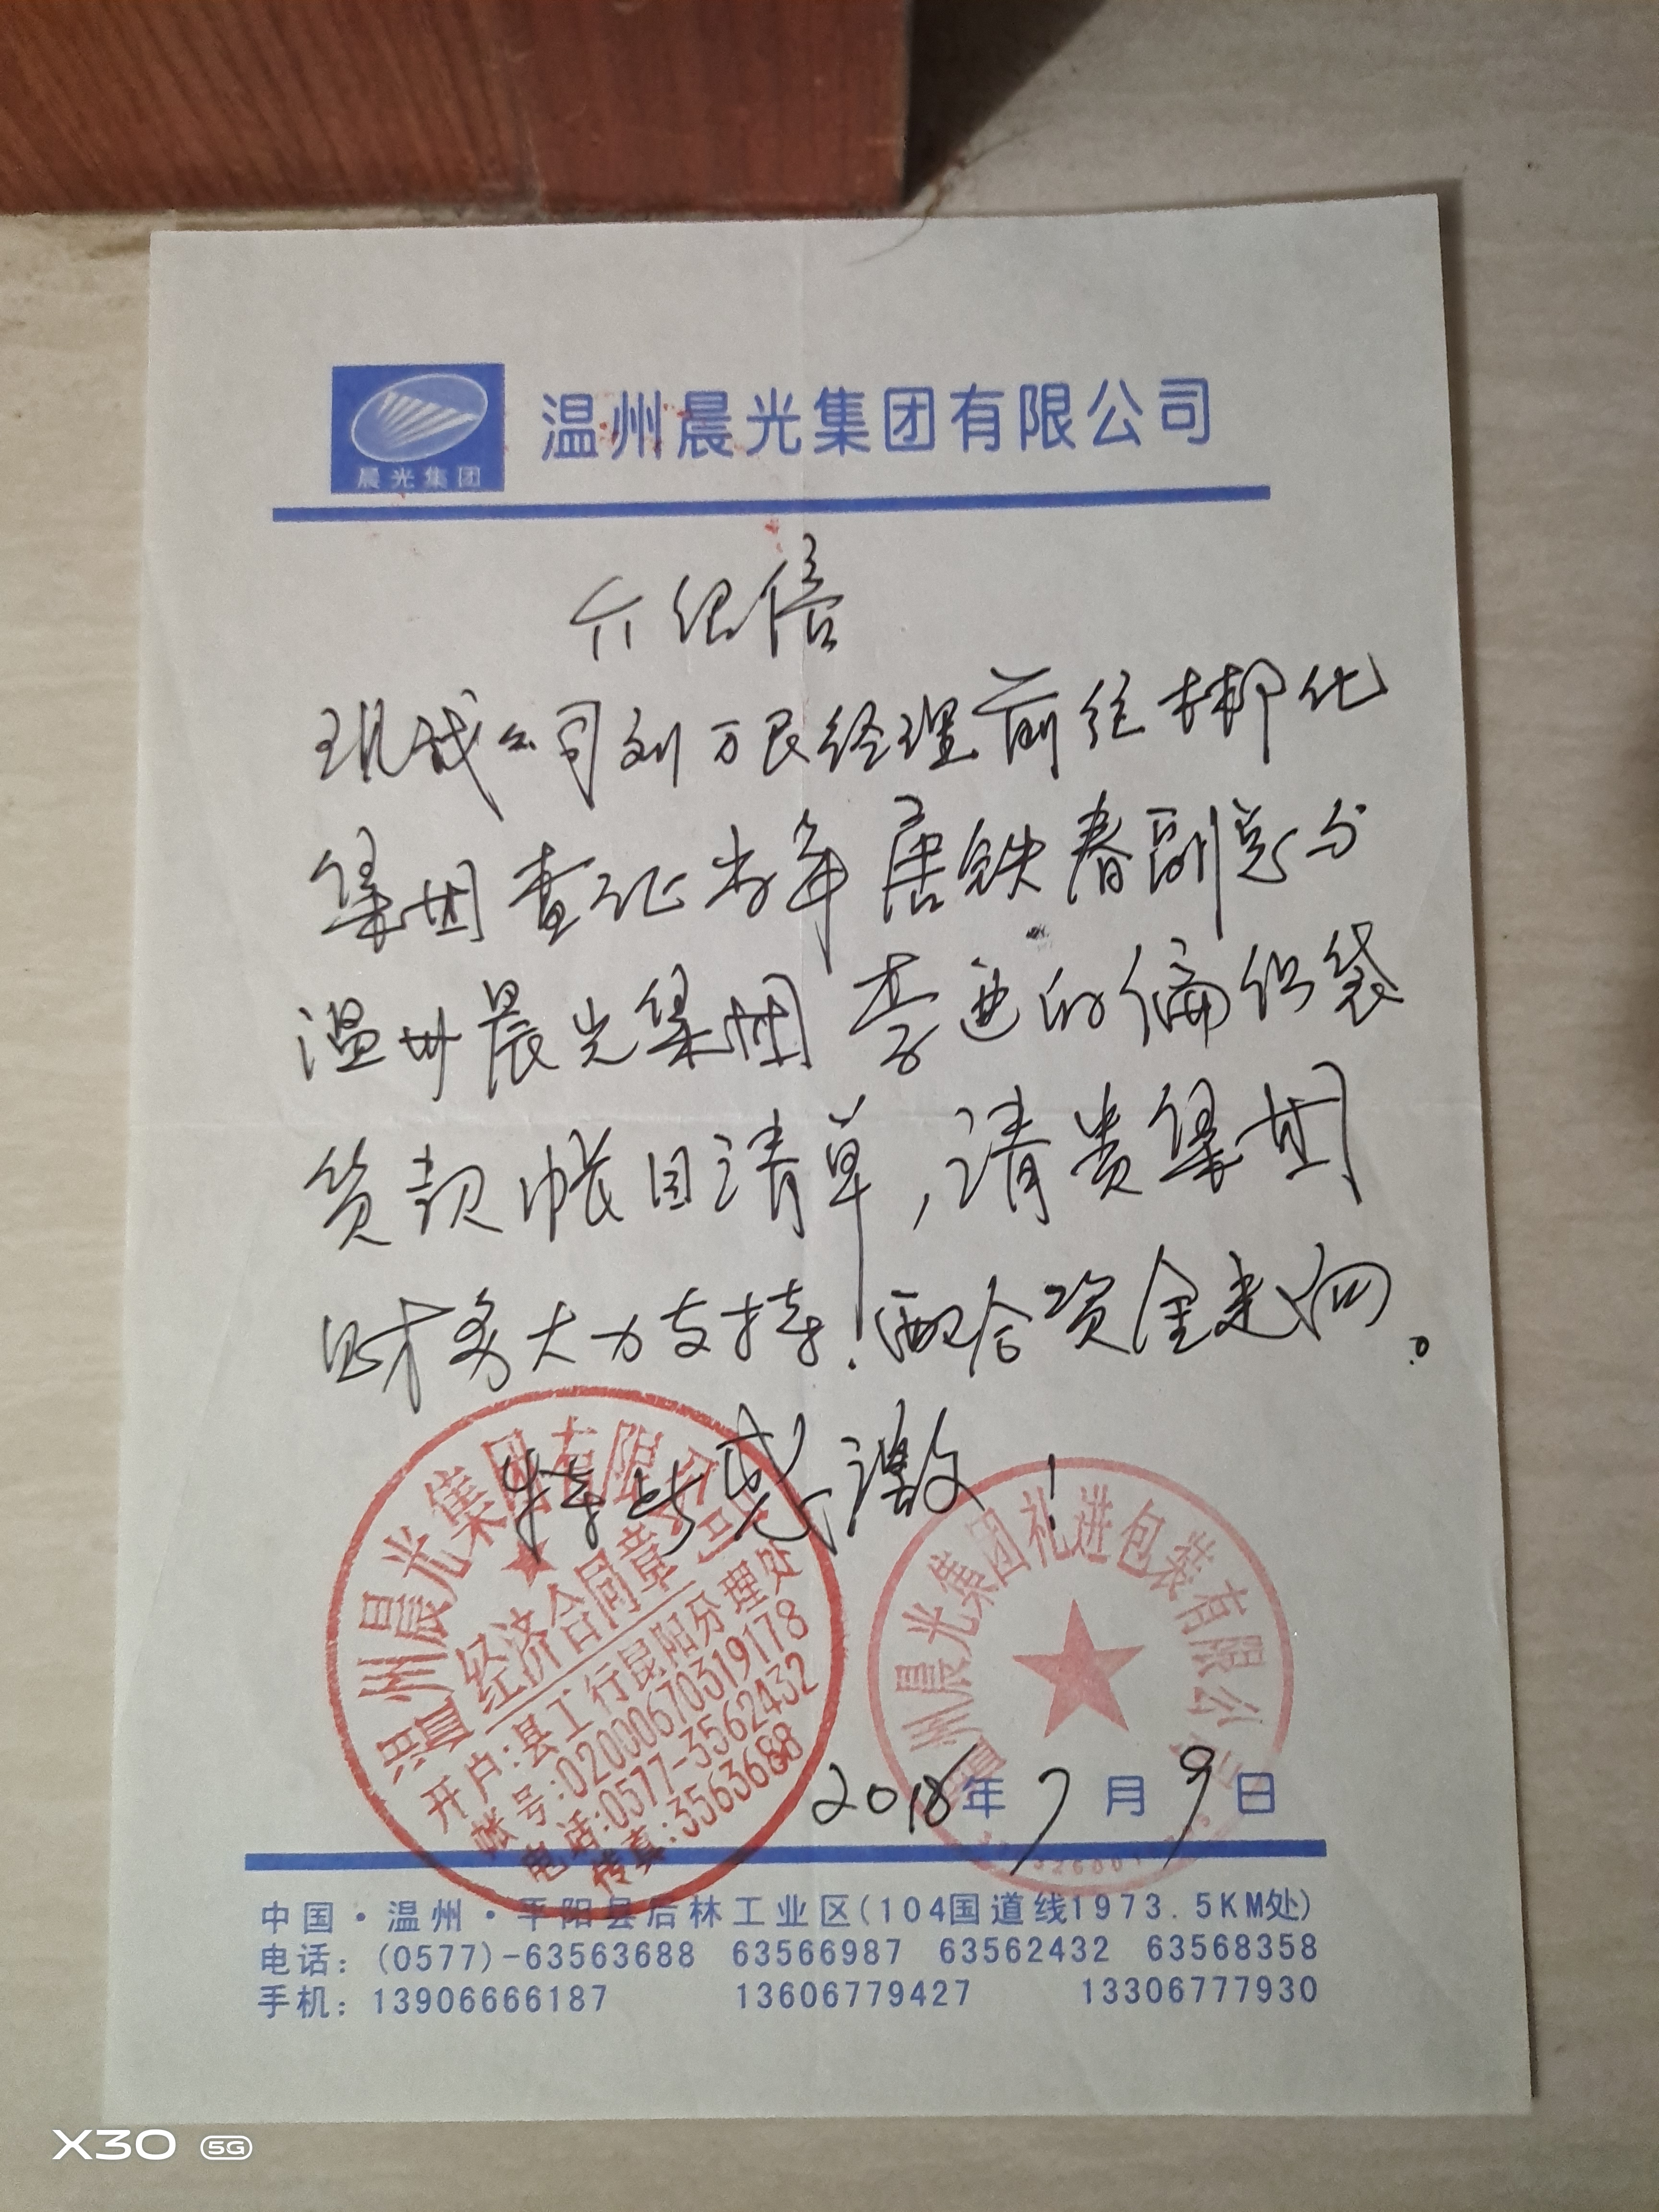 晨光集团
温州晨光集团有限公司
介绍信
现我公司刘万良经理前往柳化
集团查证当年唐铁春副总分
温州晨光集团李迪的编织袋
货款帐目清单,请贵集团
财务大力支持!配合资金
特此感激!
温州晨光集团有限公司
经济合同章
开户:县工行昆阳分理处
帐号:02000670319178
电话:0577-3562432
传真:3563688
温州晨光集团礼进包装有限公司
2018年7月9日
中国·温州·平阳县后林工业区(104国道线1973.5KM处)
电话:(0577)-63563688 63566987 63562432 63568358
手机:13906666187 13606779427 13306777930
X30 5G